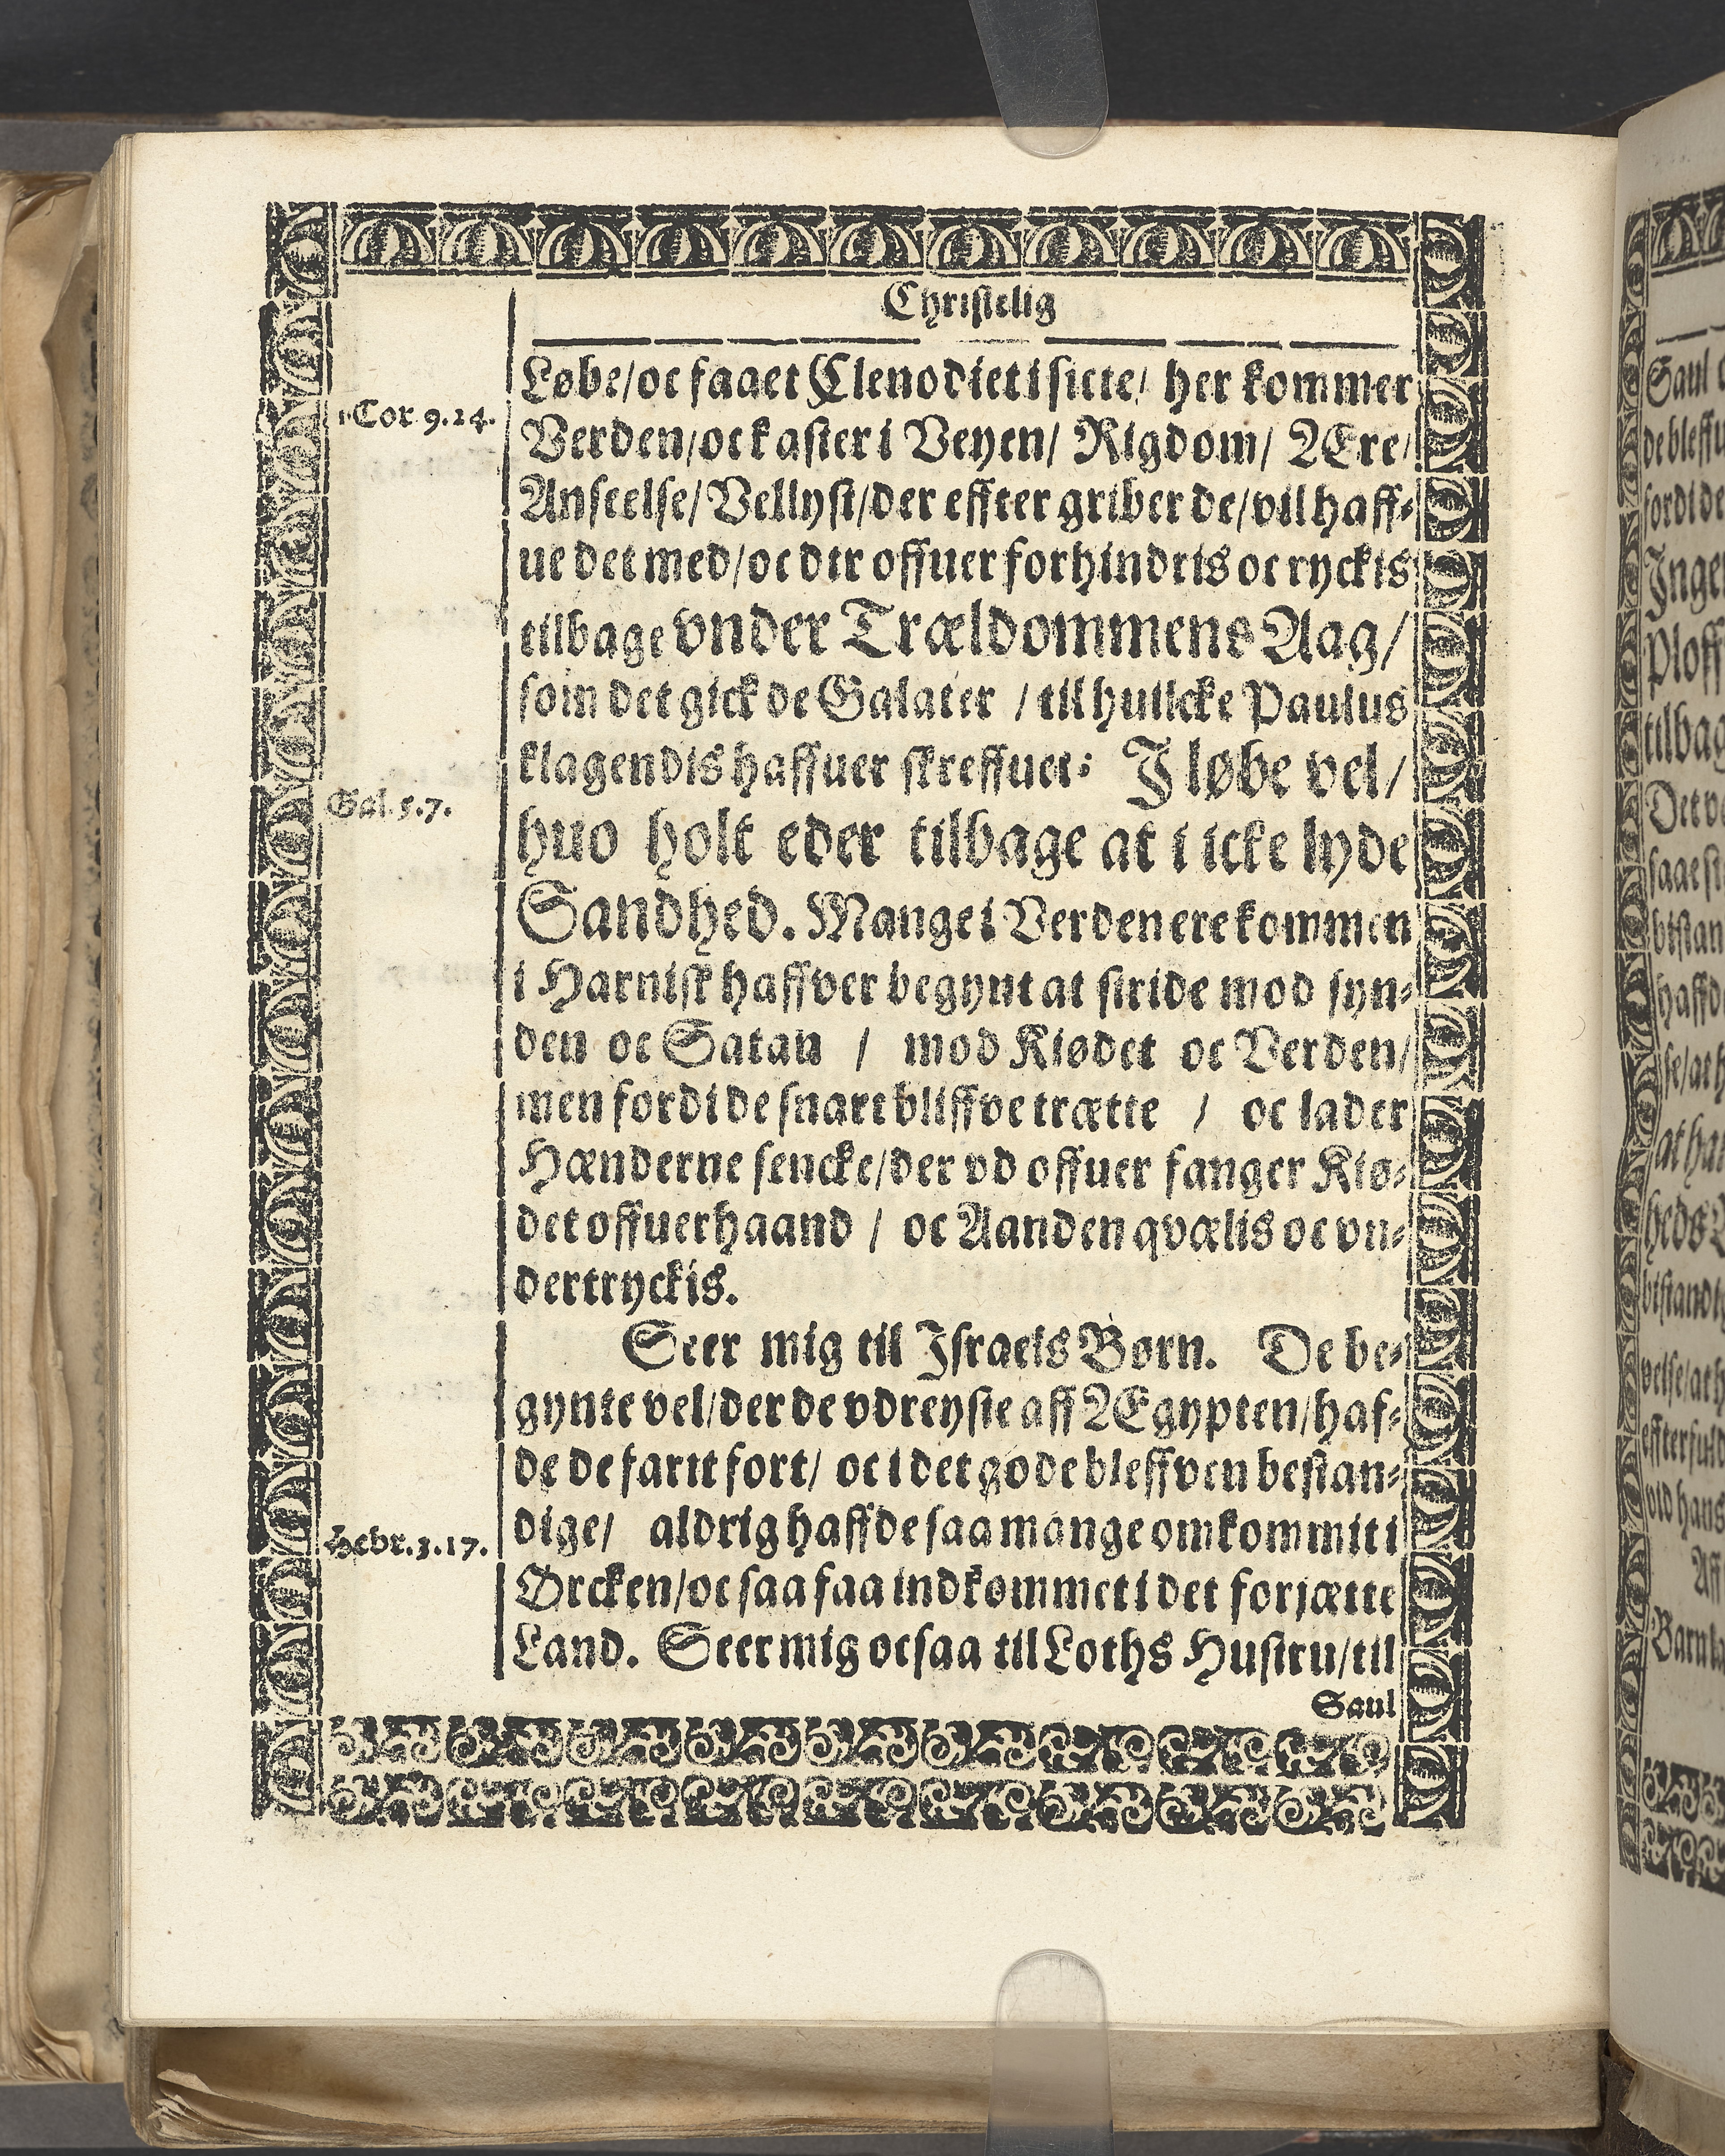 Christelig
Løbe/oc faaet Clenodiet i sicte/ her kommer
1. Cor 9.24.
Verden/oc kaster i Veyen/ Rigdom/ Ære/
Anseelse/ Vellyst/der effter griber de/vil haff-
ue det med/oc der offuer forhindris oc ryckis
tilbage vnder Trældommens Aag/
som det gick de Galater / til huilcke Paulus
klagendis haffuer skreffuet: I løbe vel/
Gal. 5.7.
huo holt eder tilbage at i icke lyde
Sandhed. Mange i Verden ere kommen
i Harnisk haffver begynt at stride mod syn-
den oc Satan / mod Kiødet oc Verden/
men fordi de snart bliffve trætte / oc lader
Hænderne sencke/der vd offuer fanger Kiø-
det offuerhaand / oc Aanden qvælis oc vn-
dertryckis.
Seer mig til Israels Børn. De be-
gynte vel/der de vdreyste aff Ægypten/haf-
de de farit fort/ oc i det gode bleffven bestan-
dige/ aldrig haffde saa mange omkommit i
Hebr. 3.17.
Ørcken/oc saa faa indkommet i det forjætte
Land. Seer mig ocsaa til Loths Hustru/til
Saul